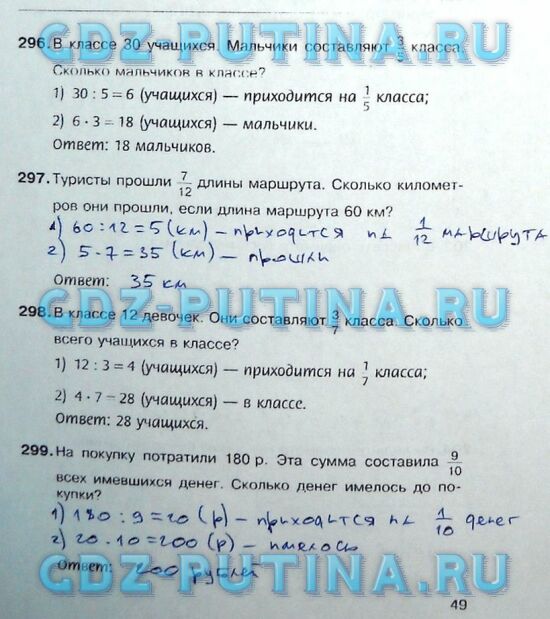 GDZ-PUTINA.RU
296. В классе 30 учащихся. Мальчики составляют 3/5 класса.
Сколько мальчиков в классе?
1) 30 : 5 = 6 (учащихся) — приходится на 1/5 класса;
2) 6 · 3 = 18 (учащихся) — мальчики.
Ответ: 18 мальчиков.
GDZ-PUTINA.RU
297. Туристы прошли 7/12 длины маршрута. Сколько километ-
ров они прошли, если длина маршрута 60 км?
1) 60 : 12 = 5 (км) – приходится на 1/12 маршрута
2) 5 · 7 = 35 (км) – прошли
Ответ: 35 км
GDZ-PUTINA.RU
298. В классе 12 девочек. Они составляют 3/7 класса. Сколько
всего учащихся в классе?
1) 12 : 3 = 4 (учащихся) — приходится на 1/7 класса;
2) 4 · 7 = 28 (учащихся) — в классе.
Ответ: 28 учащихся.
GDZ-PUTINA.RU
299. На покупку потратили 180 р. Эта сумма составила 9/10
всех имевшихся денег. Сколько денег имелось до по-
купки?
1) 180 : 9 = 20 (р) – приходится на 1/10 денег
2) 20 · 10 = 200 (р) – имелось
Ответ: 200 рублей
GDZ-PUTINA.RU
49